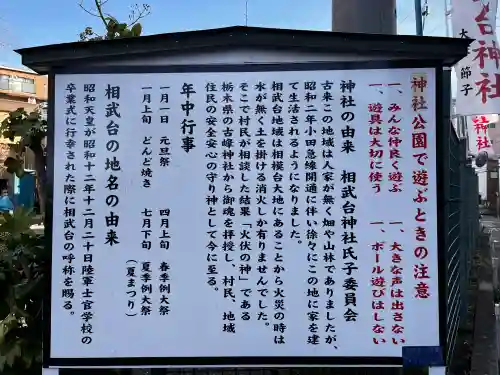 神社公園で遊ぶときの注意
一、みんな仲良く遊ぶ
一、大きな声は出さない
一、遊具は大切に使う
一、ボール遊びはしない
神社の由来　相武台神社氏子委員会
古来この地域は人家が無く畑や山林でありましたが、
昭和二年小田急線開通に伴い徐々にこの地に家を建
て生活されるようになりました。
相武台地域は相模台大地にあることから火災の時は
水が無く土を掛ける消火しか有りませんでした。
そこで村民が相談した結果「火伏の神」である
栃木県の古峰神社から御魂を拝授し、村民、地域
住民の安全安心の守り神として今に至る。
年中行事
一月一日　元旦祭　四月上旬　春季例大祭
一月上旬　どんど焼き　七月下旬　夏季例大祭
（夏まつり）
相武台の地名の由来
昭和天皇が昭和十二年十二月二十日陸軍士官学校の
卒業式に行幸された際に相武台の呼称を賜る。
台神社
節子
神社